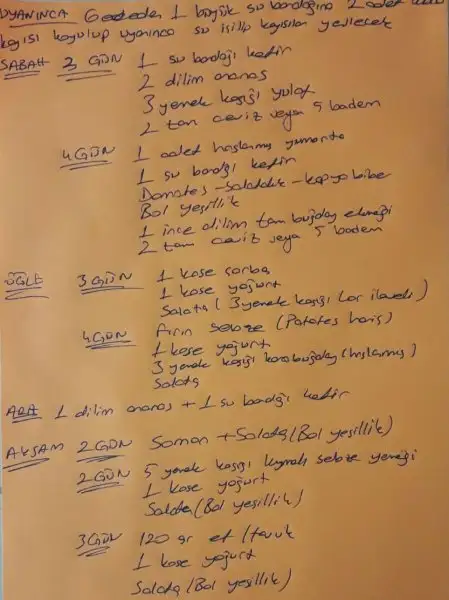 UYANINCA Geceden 1 büyük su bardağına 2 adet
kayısı koyulup uyanınca su içilip kayısılar yenilecek
SABAH 3 GÜN 1 su bardağı kefir
2 dilim ananas
3 yemek kaşığı yulaf
2 tam ceviz veya 5 badem
4 GÜN 1 adet haşlanmış yumurta
1 su bardağı kefir
Domates - salatalık - kapya biber
Bol yeşillik
1 ince dilim tam buğday ekmeği
2 tam ceviz veya 5 badem
ÖĞLE 3 GÜN 1 kase çorba
1 kase yoğurt
Salata (3 yemek kaşığı lor ilaveli)
4 GÜN Fırın sebze (Patates hariç)
1 kase yoğurt
3 yemek kaşığı karabuğday (haşlanmış)
Salata
ARA 1 dilim ananas + 1 su bardağı kefir
AKŞAM 2 GÜN Somon + Salata (Bol yeşillik)
2 GÜN 5 yemek kaşığı kıymalı sebze yemeği
1 kase yoğurt
Salata (Bol yeşillik)
3 GÜN 120 gr et / tavuk
1 kase yoğurt
Salata (Bol yeşillik)